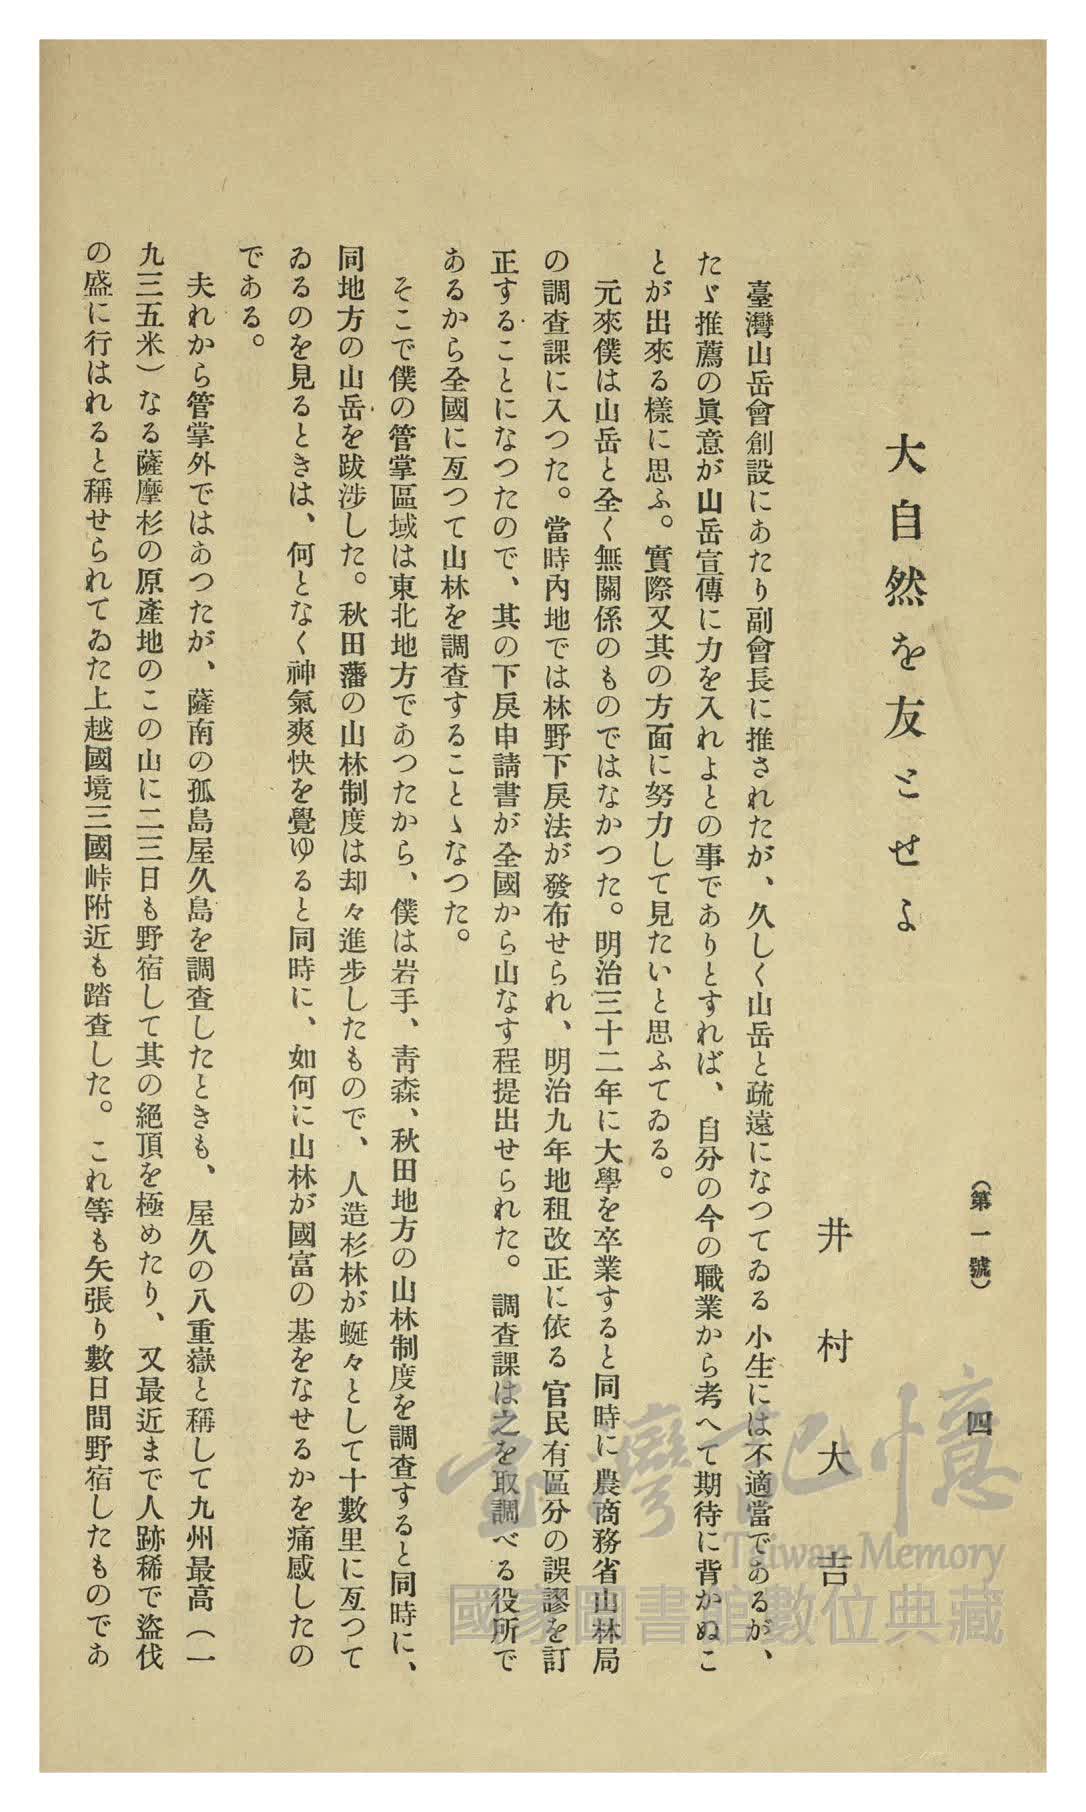 （第一號）
四
大自然を友とせよ
井村大吉
臺灣山岳會創設にあたり副會長に推されたが、久しく山岳と疏遠になつてゐる小生には不適當であるが、
たゞ推薦の眞意が山岳宣傳に力を入れよとの事でありとすれば、自分の今の職業から考へて期待に背かぬこ
とが出來る樣に思ふ。實際又其の方面に努力して見たいと思ふてゐる。
元來僕は山岳と全く無關係のものではなかつた。明治三十二年に大學を卒業すると同時に農商務省山林局
の調査課に入つた。當時內地では林野下戻法が發布せられ、明治九年地租改正に依る官民有區分の誤謬を訂
正することになつたので、其の下戻申請書が全國から山なす程提出せられた。調査課は之を取調べる役所で
あるから全國に亙つて山林を調査することゝなつた。
そこで僕の管掌區域は東北地方であつたから、僕は岩手、靑森、秋田地方の山林制度を調査すると同時に、
同地方の山岳を跋涉した。秋田藩の山林制度は却々進步したもので、人造杉林が蜒々として十數里に亙つて
ゐるのを見るときは、何となく神氣爽快を覺ゆると同時に、如何に山林が國富の基をなせるかを痛感したの
である。
夫れから管掌外ではあつたが、薩南の孤島屋久島を調査したときも、屋久の八重嶽と稱して九州最高（一
九三五米）なる薩摩杉の原產地のこの山に二三日も野宿して其の絕頂を極めたり、又最近まで人跡稀で盜伐
の盛に行はれると稱せられてゐた上越國境三國峠附近も踏査した。これ等も矢張り數日間野宿したものであ
臺灣記憶
Taiwan Memory
國家圖書館數位典藏